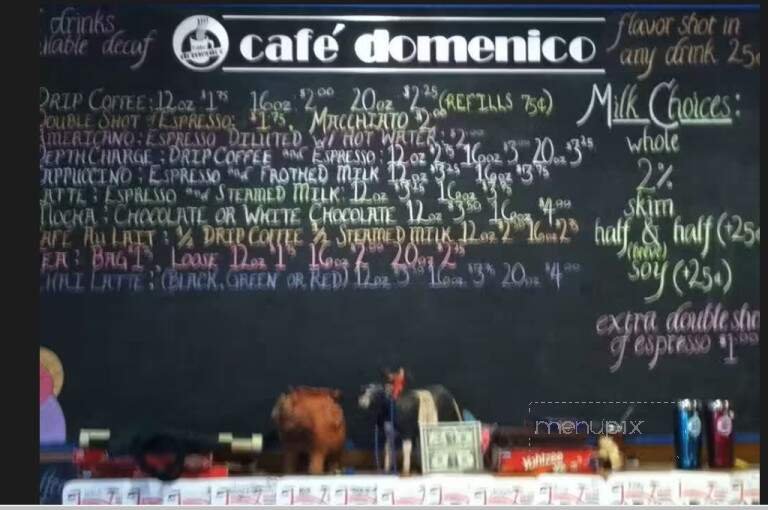 drinks
decaf
café domenico
flavor shot in
any drink 25¢
DRIP COFFEE: 12oz $1.75 16oz $2.00 20oz $2.25 (REFILLS 75¢)
DOUBLE SHOT of ESPRESSO: $1.75, MACCHIATO $2.00
AMERICANO: ESPRESSO DILUTED W/ HOT WATER: $2
DEPTH CHARGE: DRIP COFFEE and ESPRESSO: 12oz $2.75 16oz $3 20oz $3.25
APPUCCINO: ESPRESSO and FROTHED MILK 12oz $3.25 16oz $3.75
ATTE: ESPRESSO and STEAMED MILK: 12oz $3.25 16oz $3.75
MOCHA: CHOCOLATE OR WHITE CHOCOLATE 12oz $3.50 16oz $4.00
CAFE AU LAIT: ½ DRIP COFFEE ½ STEAMED MILK 12oz $2 16oz $2
EA: BAG LOOSE 12oz 16oz 20oz
CHAI LATTE: (BLACK, GREEN OR RED) 12oz 16oz 20oz $4.00
Milk Choices:
whole
2%
skim
half & half (+25¢
(breve)
soy (+25¢)
extra double sho
of espresso $1.00
menupix
Yahtzee